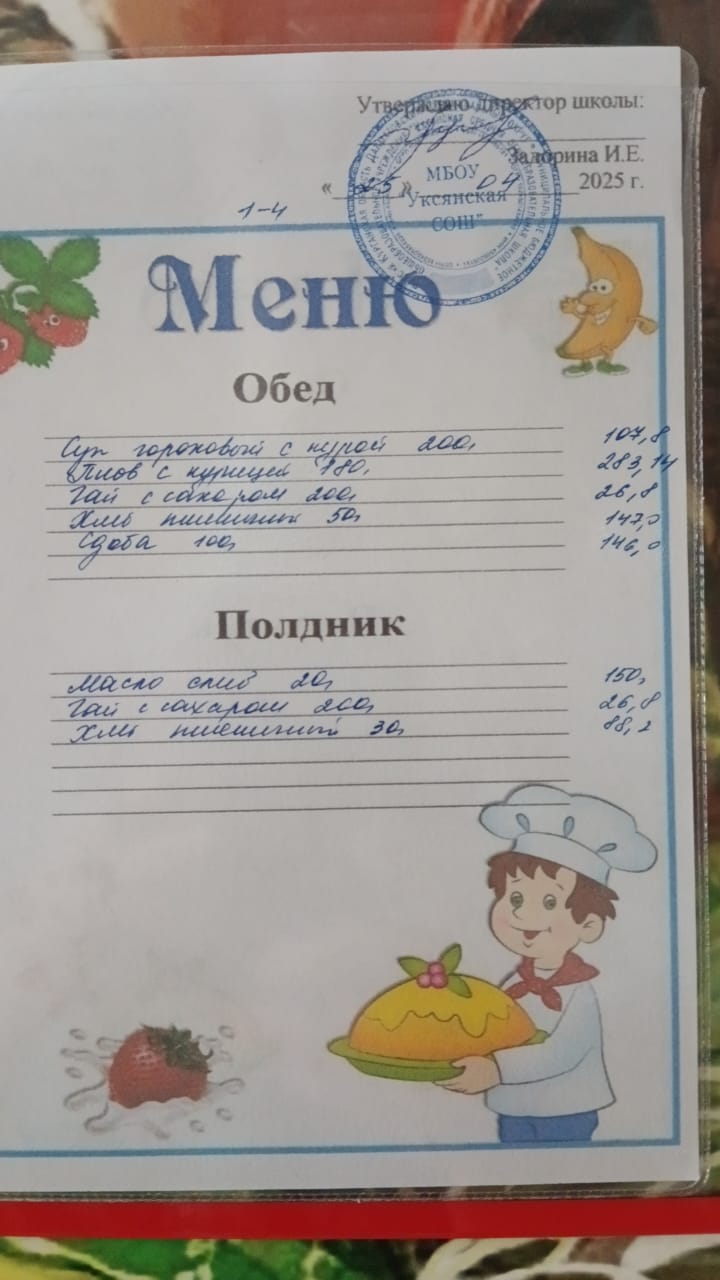 Утверждаю директор школы:
Задорина И.Е.
« 25 » 04 2025 г.
МБОУ
"Уксянская
СОШ"
1-4
Меню
Обед
Суп гороховый с курой 200, 107,8
Плов с курицей 180, 283,14
Чай с сахаром 200, 26,8
Хлеб пшеничный 50, 147,0
Сдоба 100, 146,0
Полдник
Масло слив 20, 150,
Чай с сахаром 200, 26,8
Хлеб пшеничный 30, 88,2